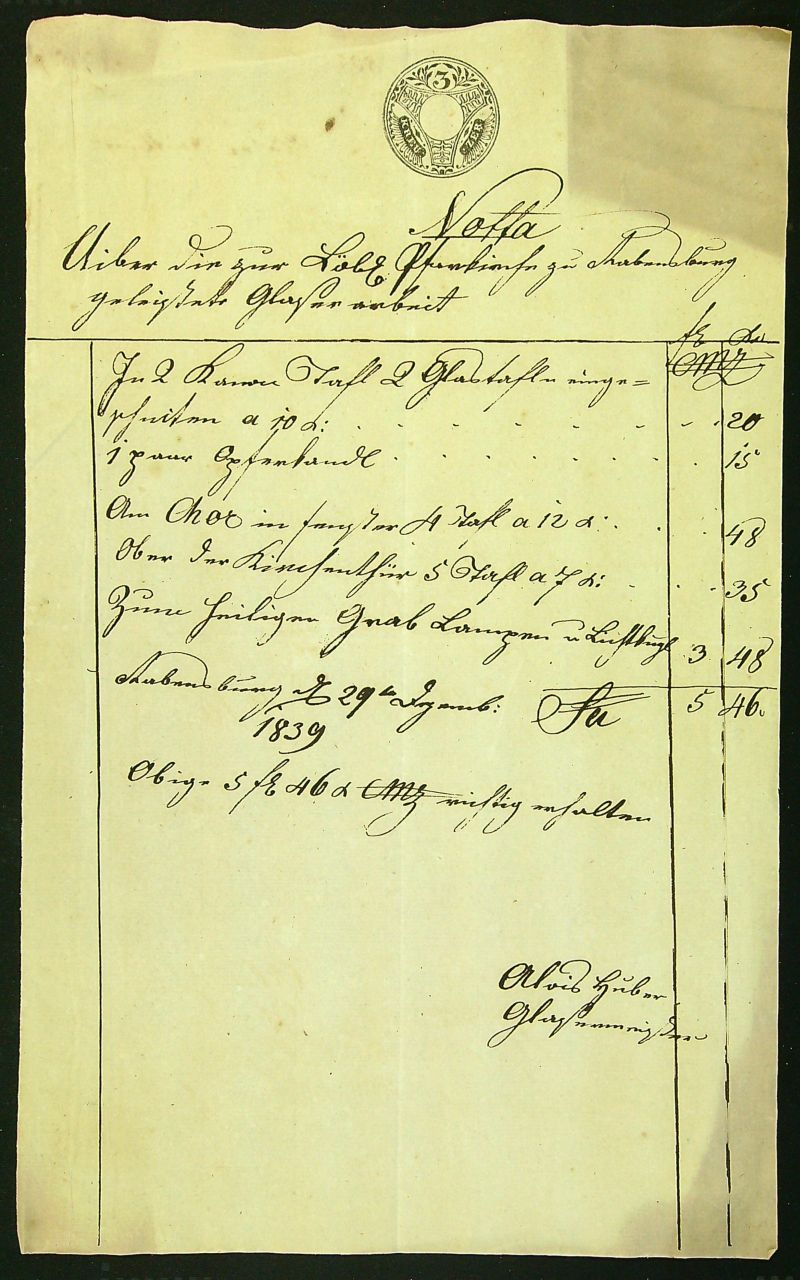 3
KREU ZER
Notta
Uiber die zur Löbl. Pfarkirche zu Rabensburg
geleistete Glaser arbeit
fl x
CMz
In 2 Kanon Tafl 2 Glastafln einge=
schniten a 10 x: 20
1 paar Opferkandl 15
Am Chor in fenster 4 Tafl a 12 x: 48
Ober der Kirchenthür 5 Tafl a 7 x: 35
Zum heiligen Grab Lampen u Lichtkugl 3 48
Rabensburg d 29te Dezemb: Su 5 46.
1839
Obige 5 fl 46 x CMz richtig erhalten
Alois Huber
Glasermeister